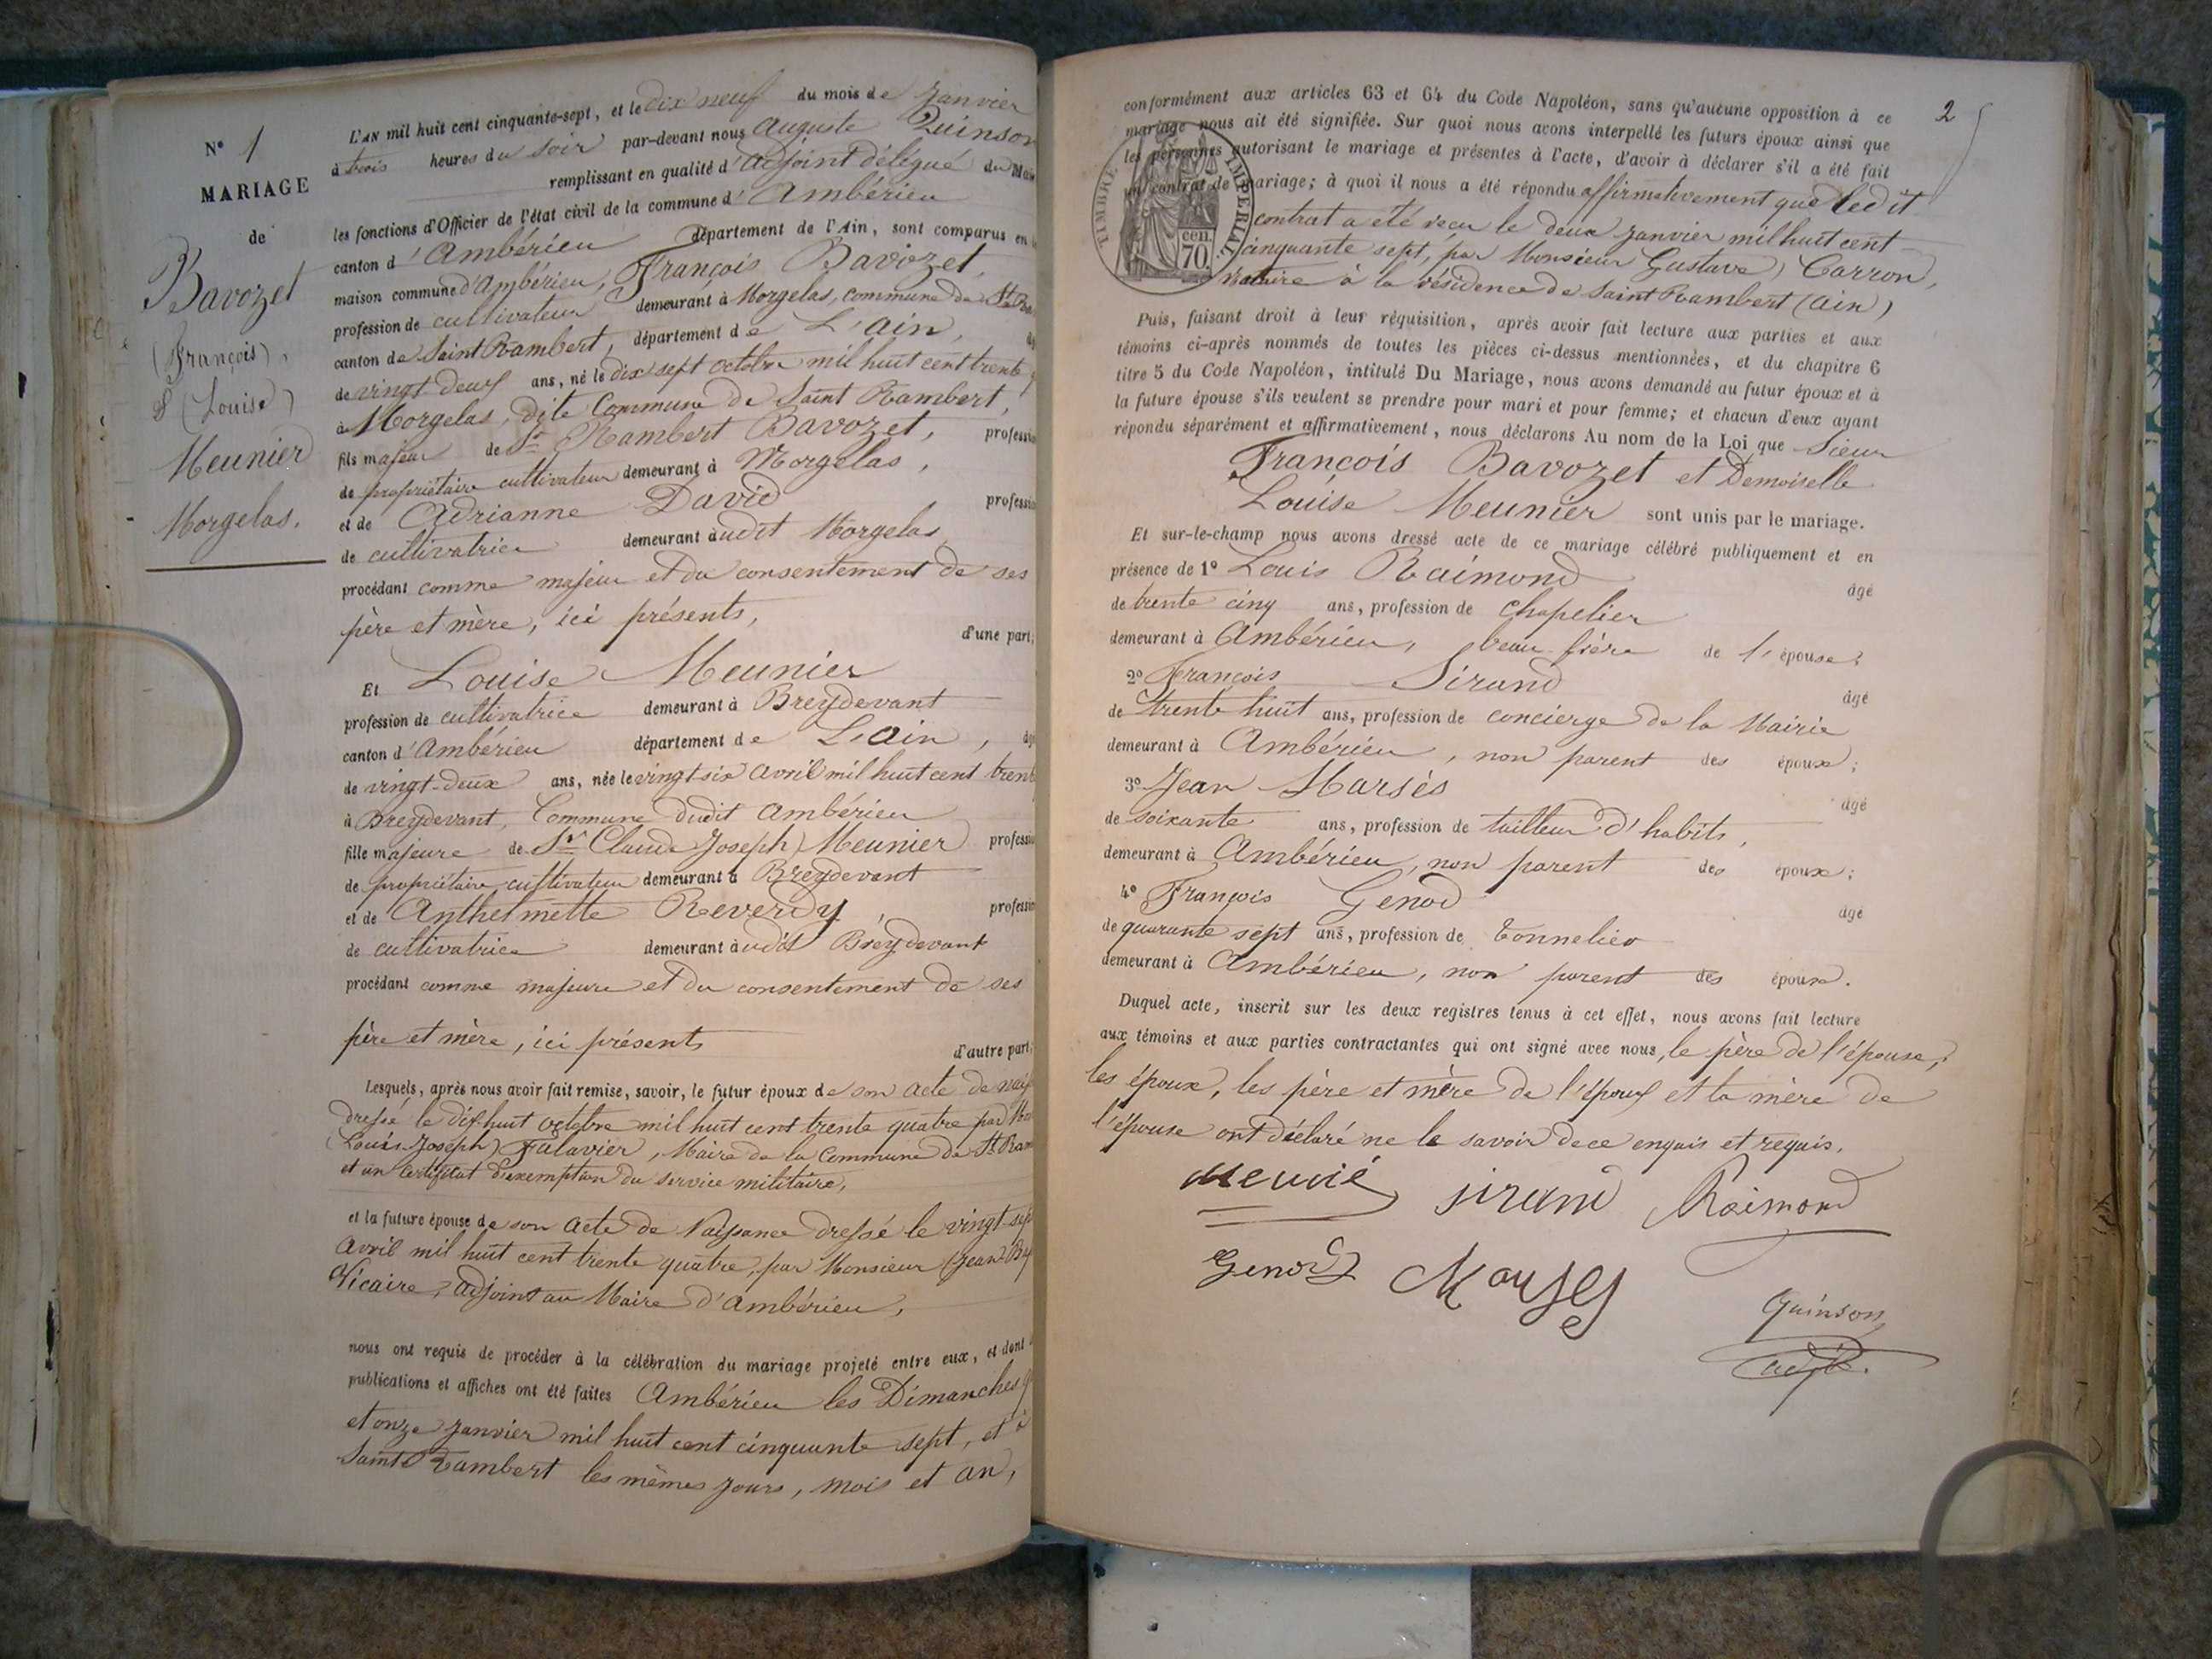 N° 1
MARIAGE
de
Bavozet
(François),
& (Louise)
Meunier
Morgelas.
L'AN mil huit cent cinquante-sept, et le dix neuf du mois de Janvier
à trois heures du soir par-devant nous Auguste Quinson
remplissant en qualité d'adjoint délégué du Maire
les fonctions d'Officier de l'état civil de la commune d'Ambérieu
canton d'Ambérieu département de l'Ain, sont comparus en la
maison commune d'Ambérieu, François Bavozet,
profession de cultivateur demeurant à Morgelas, commune de St
canton de Saint Rambert, département de L'ain,
de vingt deux ans, né le dix sept octobre mil huit cent trente
à Morgelas, dite Commune de Saint Rambert,
fils majeur de Sr Rambert Bavozet, profession
de propriétaire cultivateur demeurant à Morgelas,
et de Adrianne David profession
de cultivatrice demeurant audit Morgelas
procédant comme majeur et du consentement de ses
père et mère, ici présents, d'une part;
Et Louise Meunier
profession de cultivatrice demeurant à Breydevant
canton d'Ambérieu département de L'Ain,
de vingt-deux ans, née le vingt six avril mil huit cent trente
à Breydevant, Commune dudit Ambérieu
fille majeure de Sr Claude Joseph Meunier profession
de propriétaire cultivateur demeurant à Breydevant
et de Anthelmette Reverdy, profession
de cultivatrice demeurant audit Breydevant
procédant comme majeure et du consentement de ses
père et mère, ici présents d'autre part;
Lesquels, après nous avoir fait remise, savoir, le futur époux de son acte de
dressé le dix-huit octobre mil huit cent trente quatre par
(Louis-Joseph) Falavier, Maire de la Commune de St
et un certificat d'exemption du service militaire,
et la future épouse de son acte de Naissance dressé le vingt
avril mil huit cent trente quatre, par Monsieur (Jean
Vicaire, adjoint au Maire d'Ambérieu,
nous ont requis de procéder à la célébration du mariage projeté entre eux, et dont
publications et affiches ont été faites Ambérieu les Dimanches
et onze Janvier mil huit cent cinquante sept, et à
Saint Rambert les mêmes jours, mois et an,
2
conformément aux articles 63 et 64 du Code Napoléon, sans qu'aucune opposition à ce
mariage nous ait été signifiée. Sur quoi nous avons interpellé les futurs époux ainsi que
les personnes autorisant le mariage et présentes à l'acte, d'avoir à déclarer s'il a été fait
un contrat de mariage; à quoi il nous a été répondu affirmativement que ledit
contrat a été reçu le deux janvier mil huit cent
cinquante sept, par Monsieur (Gustave) Carron,
Notaire à la résidence de Saint Rambert (ain)
TIMBRE IMPERIAL
cen.
70.
Puis, faisant droit à leur réquisition, après avoir fait lecture aux parties et aux
témoins ci-après nommés de toutes les pièces ci-dessus mentionnées, et du chapitre 6
titre 5 du Code Napoléon, intitulé Du Mariage, nous avons demandé au futur époux et à
la future épouse s'ils veulent se prendre pour mari et pour femme; et chacun d'eux ayant
répondu séparément et affirmativement, nous déclarons Au nom de la Loi que Sieur
François Bavozet et Demoiselle
Louise Meunier sont unis par le mariage.
Et sur-le-champ nous avons dressé acte de ce mariage célébré publiquement et en
présence de 1° Louis Raimond âgé
de trente cinq ans, profession de chapelier
demeurant à Ambérieu, beau-frère de l'épouse;
2° François Sirand âgé
de trente huit ans, profession de concierge de la Mairie
demeurant à Ambérieu, non parent des époux;
3° Jean Marsès âgé
de soixante ans, profession de tailleur d'habits,
demeurant à Ambérieu, non parent des époux;
4° François Genod âgé
de quarante sept ans, profession de Tonnelier
demeurant à Ambérieu, non parent des époux.
Duquel acte, inscrit sur les deux registres tenus à cet effet, nous avons fait lecture
aux témoins et aux parties contractantes qui ont signé avec nous, le père de l'épouse,
les époux, les père et mère de l'époux et la mère de
l'épouse ont déclaré ne le savoir de ce enquis et requis.
Meunié Sirand Raimond
Genod
Quinson
adjt.